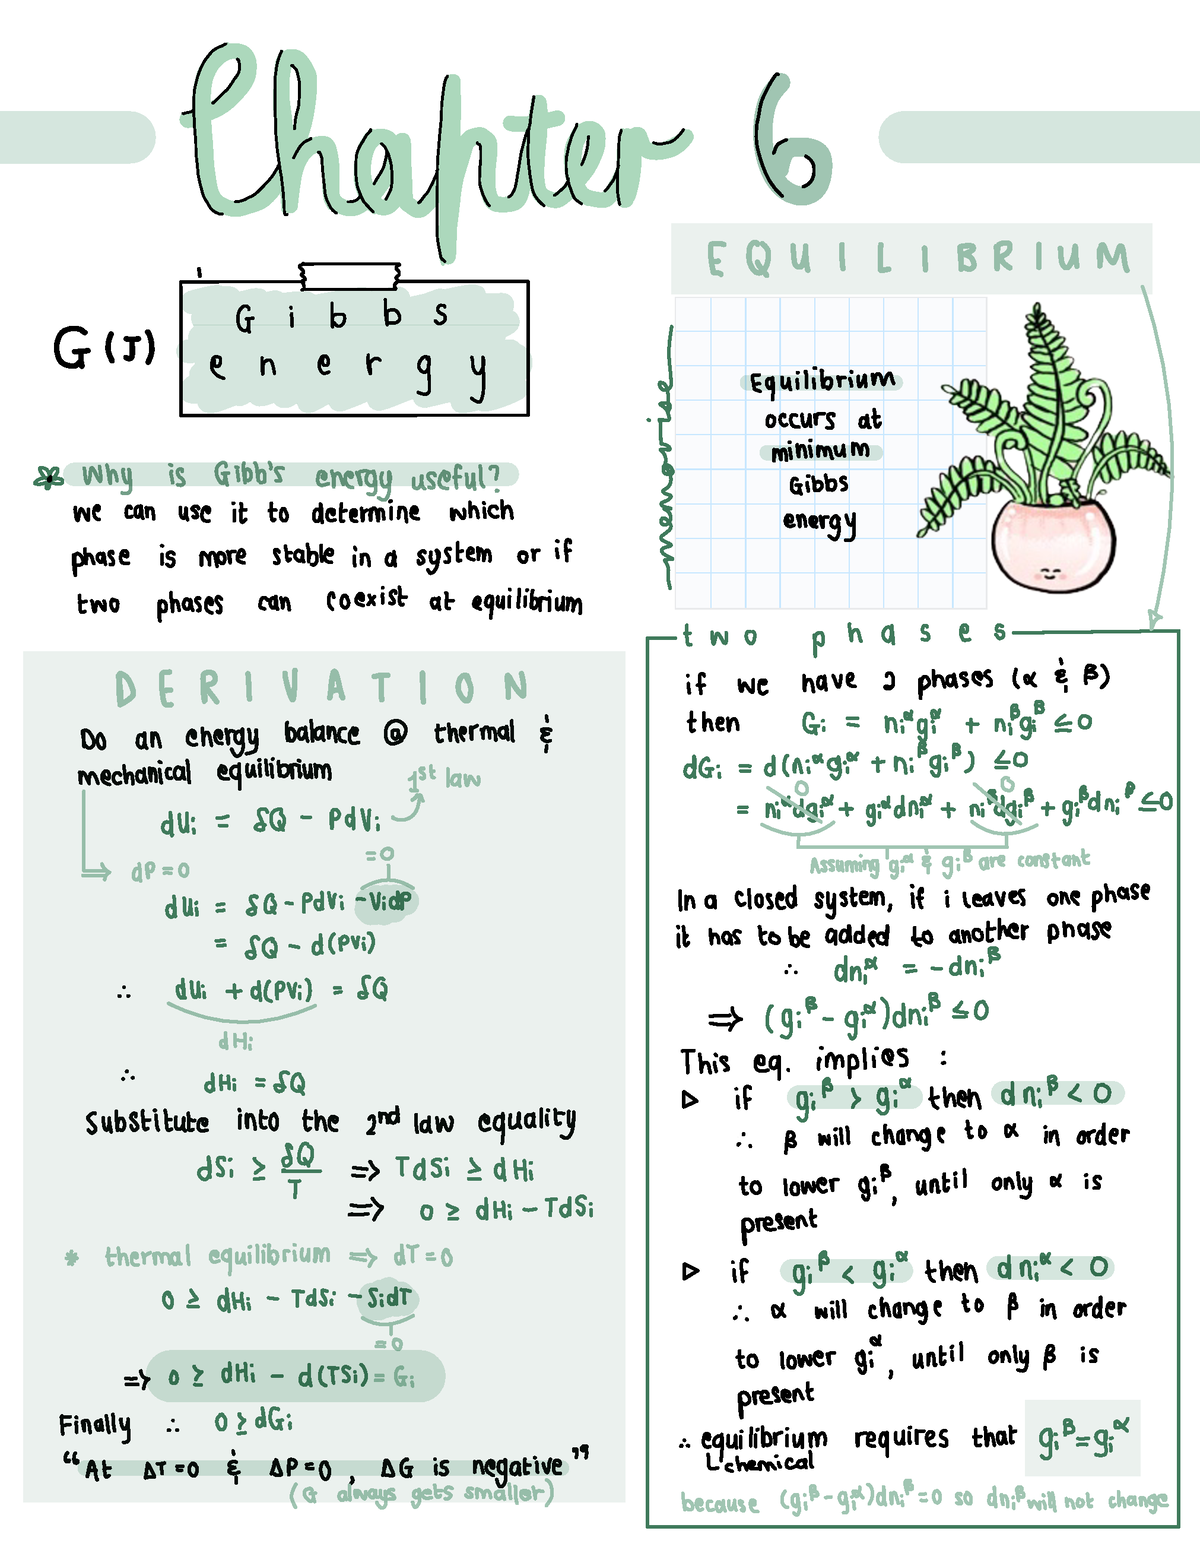 Chapter 6
G (J)
Gibbs
energy
Why is Gibb's energy useful?
we can use it to determine which
phase is more stable in a system or if
two phases can coexist at equilibrium
DERIVATION
Do an energy balance @ thermal &
mechanical equilibrium
1st law
dUi = δQ - PdVi
dP=0
=0
dUi = δQ - PdVi - VidP
= δQ - d(PVi)
∴ dUi + d(PVi) = δQ
dHi
∴ dHi = δQ
Substitute into the 2nd law equality
dSi ≥ δQ/T ⇒ TdSi ≥ dHi
⇒ 0 ≥ dHi - TdSi
* thermal equilibrium ⇒ dT=0
0 ≥ dHi - TdSi - SidT
=0
⇒ 0 ≥ dHi - d(TSi) = Gi
Finally ∴ 0 ≥ dGi
"At ΔT=0 & ΔP=0, ΔG is negative"
(G always gets smaller)
EQUILIBRIUM
memorise
Equilibrium
occurs at
minimum
Gibbs
energy
two phases
if we have 2 phases (α & β)
then Gi = niᵅgiᵅ + niᵝgiᵝ ≤0
dGi = d(niᵅgiᵅ + niᵝgiᵝ) ≤0
0 0
= niᵅdgiᵅ + giᵅdniᵅ + niᵝdgiᵝ + giᵝdniᵝ ≤0
Assuming giᵅ & giᵝ are constant
In a closed system, if i leaves one phase
it has to be added to another phase
∴ dniᵅ = -dniᵝ
⇒ (giᵝ - giᵅ)dniᵝ ≤0
This eq. implies :
▷ if giᵝ > giᵅ then dniᵝ < 0
∴ β will change to α in order
to lower giᵝ, until only α is
present
▷ if giᵝ < giᵅ then dniᵅ < 0
∴ α will change to β in order
to lower giᵅ, until only β is
present
∴ equilibrium requires that giᵝ=giᵅ
chemical
because (giᵝ-giᵅ)dniᵝ=0 so dniᵝ will not change